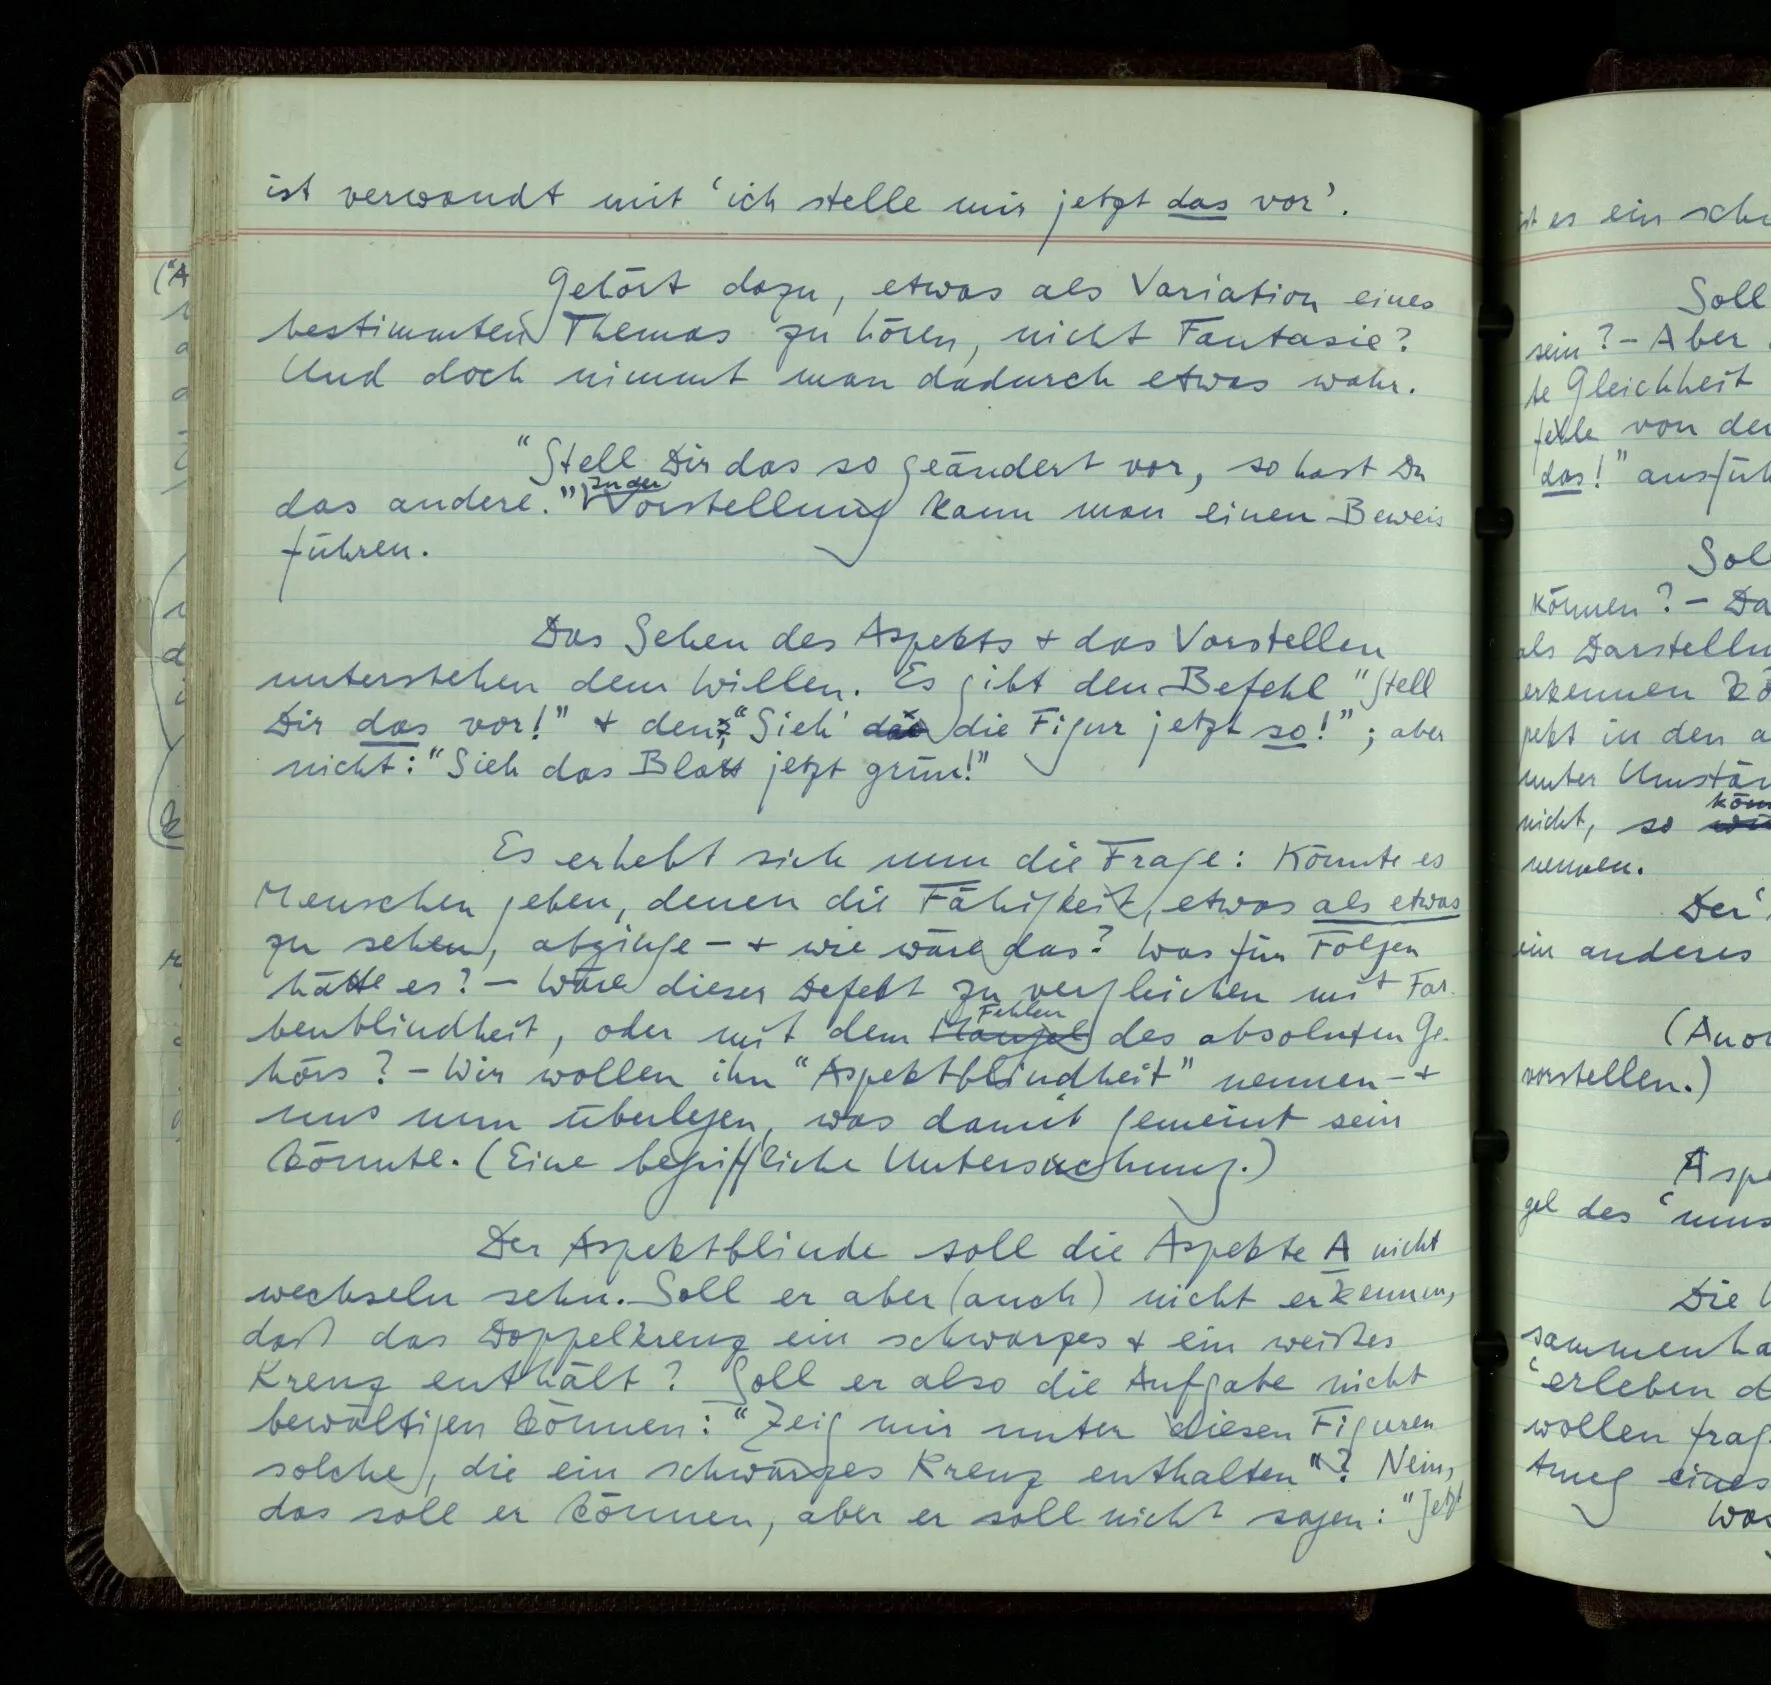 ist verwandt mit ‘ich stelle mir jetzt das vor’.
Gehört dazu, etwas als Variation eines
bestimmten Themas zu hören, nicht Fantasie?
Und doch nimmt man dadurch etwas wahr.
“Stell Dir das so geändert vor, so hast Du
das andere.” In der Vorstellung kann man einen Beweis
führen.
Das Sehen des Aspekts + das Vorstellen
unterstehen dem Willen. Es gibt den Befehl “Stell
Dir das vor!” + den: “Sieh’ die Figur jetzt so!”; aber
nicht: “Sieh das Blatt jetzt grün!”
Es erhebt sich nun die Frage: Könnte es
Menschen geben, denen die Fähigkeit, etwas als etwas
zu sehen, abginge – + wie wäre das? Was für Folgen
hätte es? – Wäre dieser Defekt zu vergleichen mit Far-
benblindheit, oder mit dem Mangel Fehlen des absoluten Ge-
hörs? – Wir wollen ihn “Aspektblindheit” nennen – +
uns nun überlegen, was damit gemeint sein
könnte. (Eine begriffliche Untersuchung.)
Der Aspektblinde soll die Aspekte A nicht
wechseln sehn. Soll er aber (auch) nicht erkennen,
daß das Doppelkreuz ein schwarzes + ein weißes
Kreuz enthält? Soll er also die Aufgabe nicht
bewältigen können: “Zeig mir unter diesen Figuren
solche, die ein schwarzes Kreuz enthalten”? Nein,
das soll er können, aber er soll nicht sagen: “Jetzt
("A
ist es ein schw
Soll
sein? – Aber
te Gleichheit
fehle von der
das!” ausfüh
Soll
können? – Da
als Darstellu
erkennen kö
pekt in den a
unter Umstän
nicht, so kön
nennen.
Der ‘
ein anderes
(Anor
vorstellen.)
Aspe
gel des ‘mus
Die
sammenha
‘erleben d
wollen frag
tung eines
Was